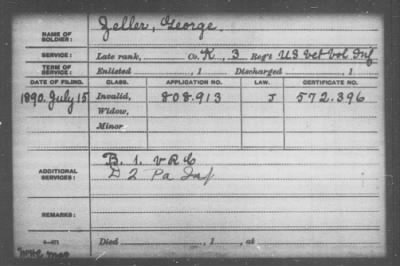 NAME OF SOLDIER: Zeller, George
SERVICE: Late rank, Co. K, 3 Reg't US Vet Vol. Inf
TERM OF SERVICE: Enlisted , 1 Discharged , 1
DATE OF FILING. CLASS. APPLICATION NO. LAW. CERTIFICATE NO.
1890. July 15 Invalid, 808.913 J 572.396
Widow,
Minor
ADDITIONAL SERVICES: B. 1. V R C
D 2 Pa Inf
REMARKS:
Died , 1 , at